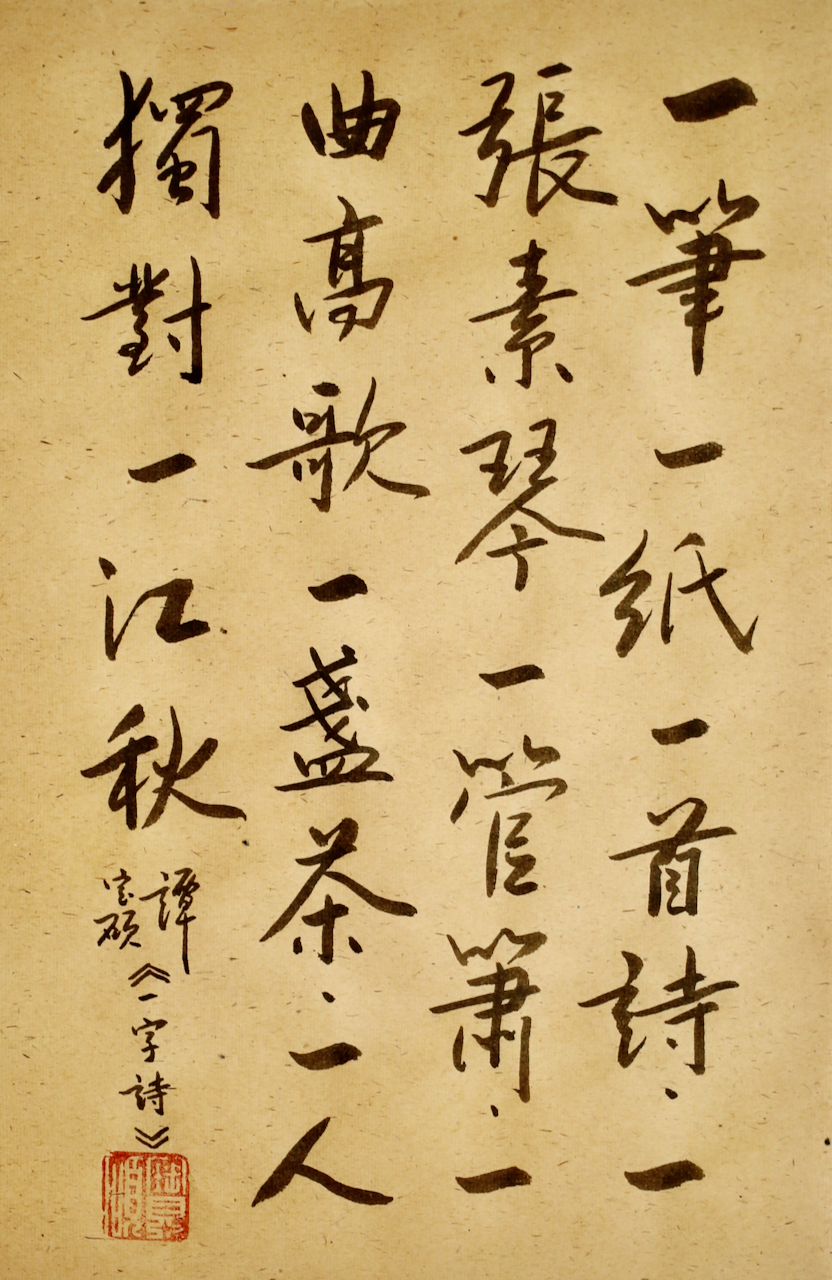 一筆一紙一首詩、一
張素琴一管簫、一
曲高歌一盞茶、一人
獨對一江秋
譚
宝硕
《一字詩》